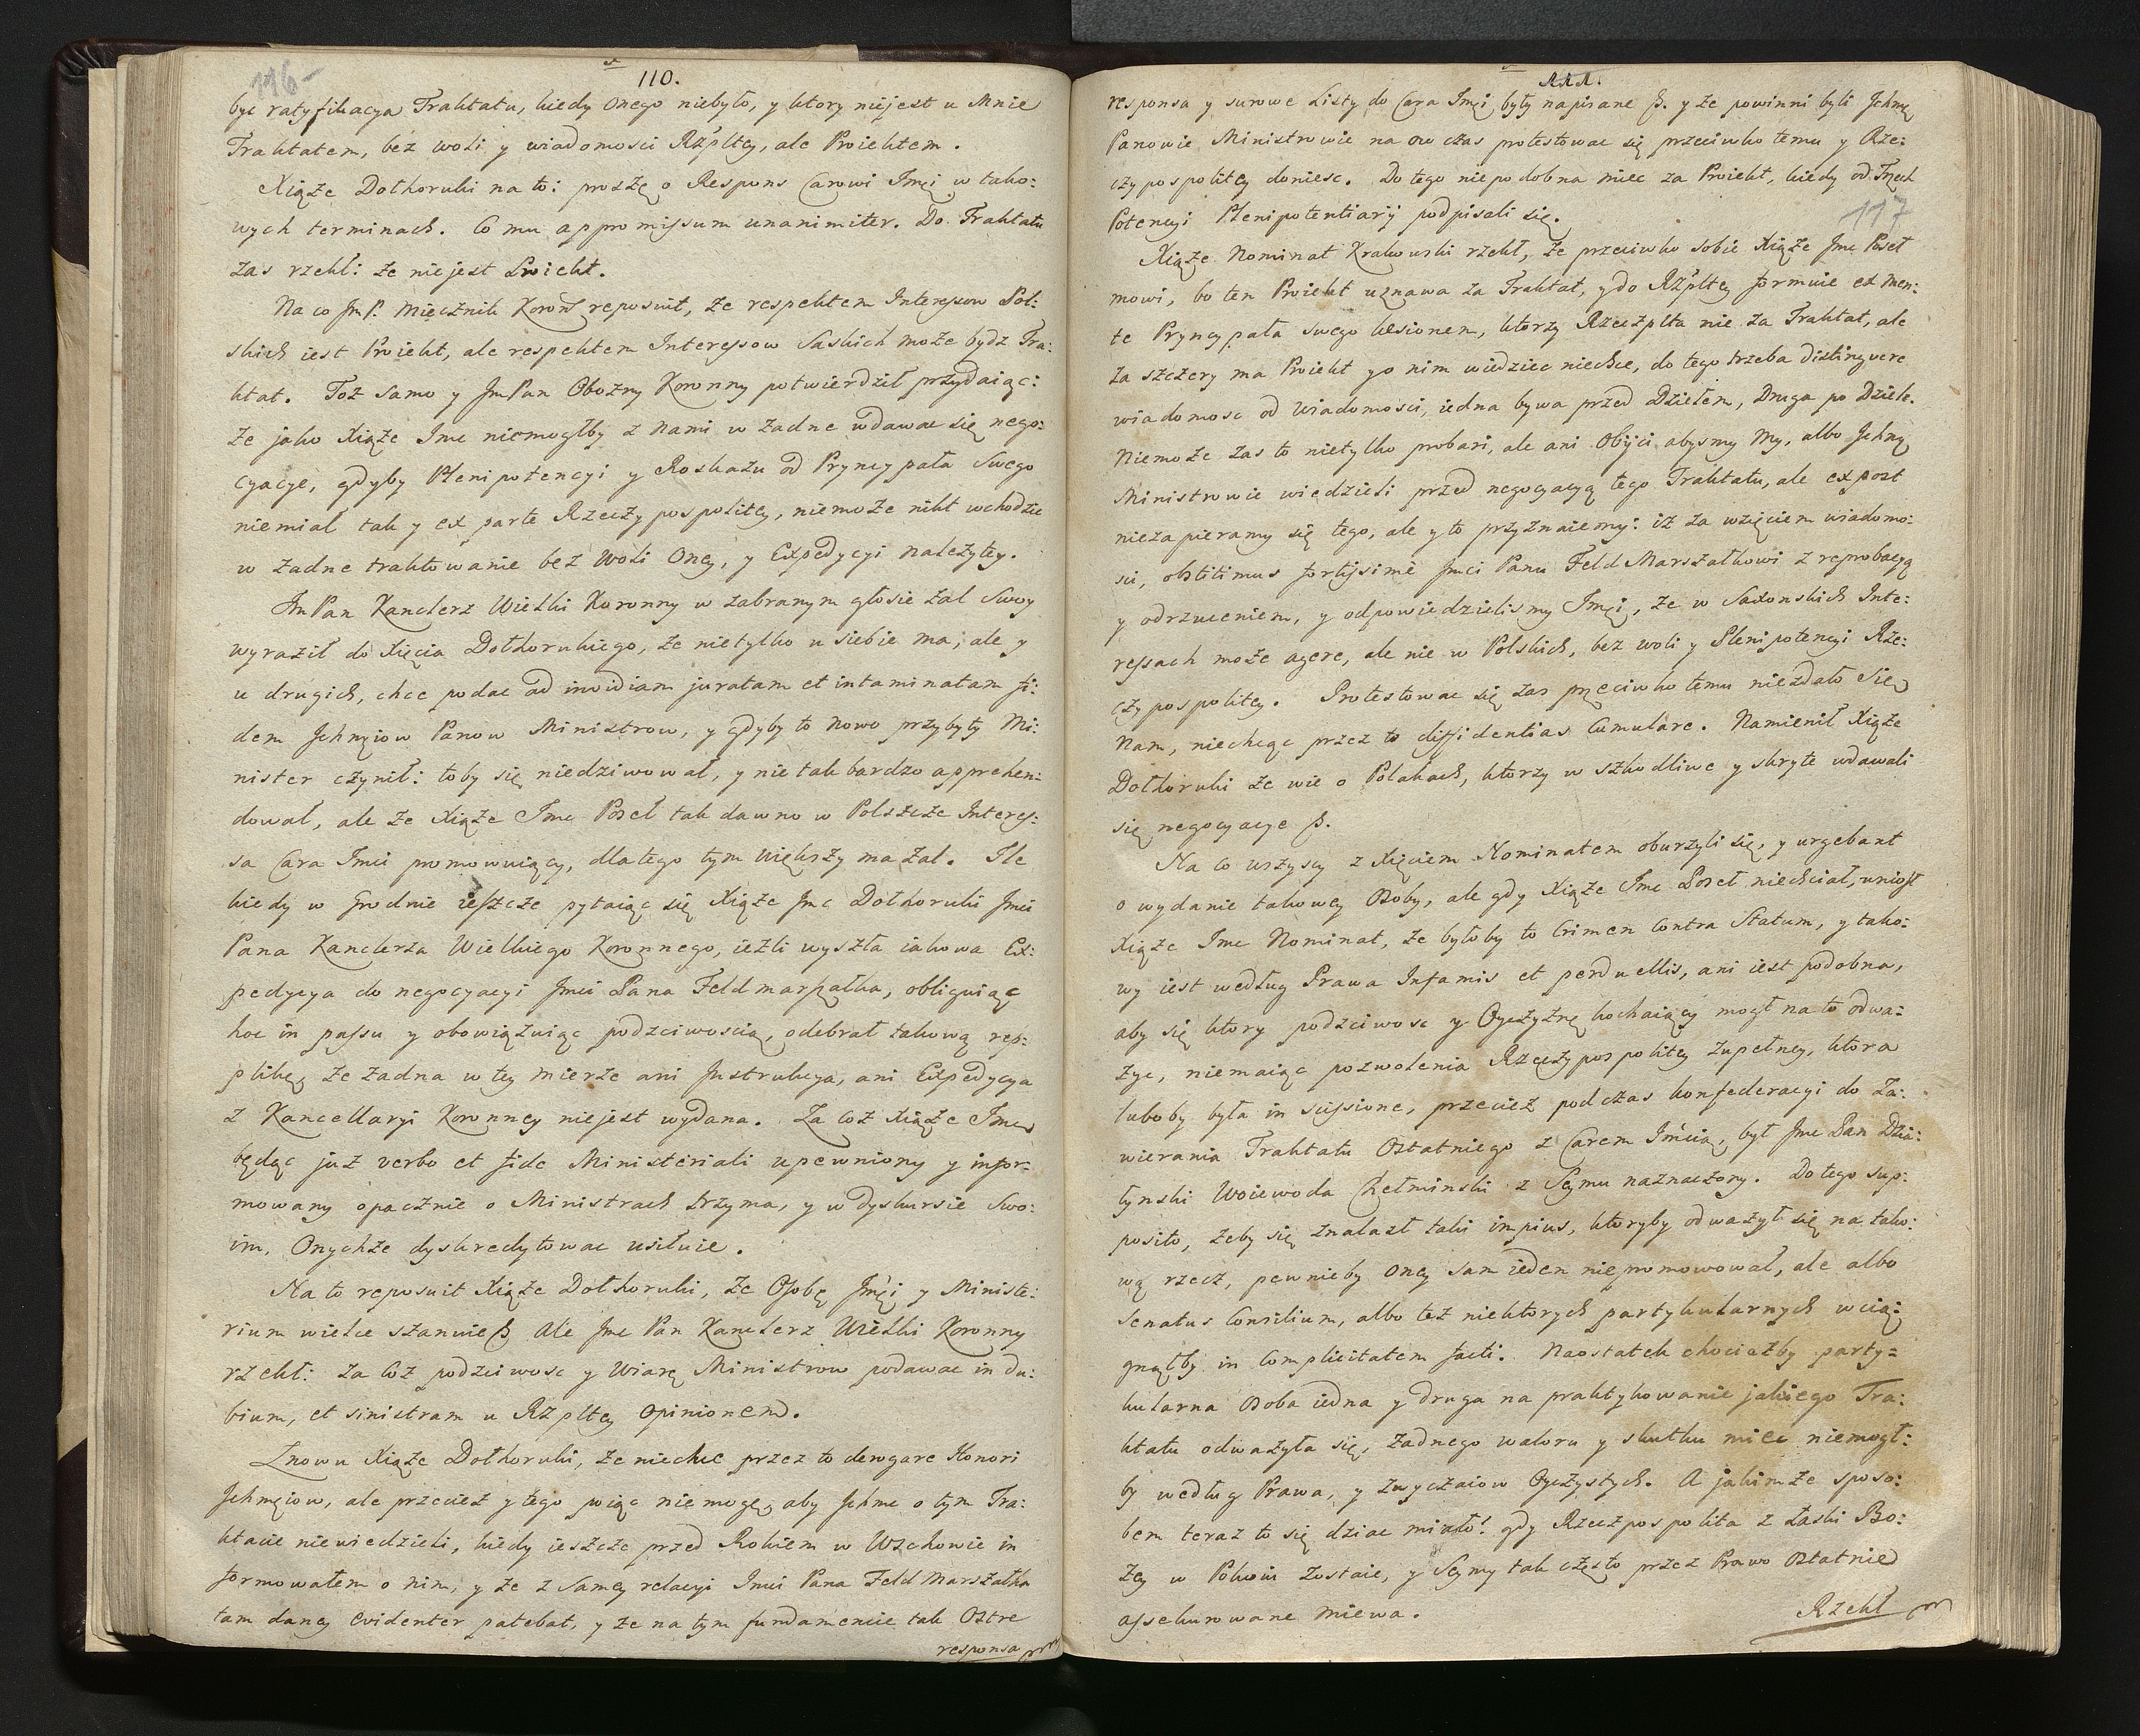 116
110.
być ratyfikacya Traktatu, kiedy onego niebyło, y ktory niejest u Mnie
Traktatem, bez woli y wiadomosci Rzpltey, ale Proiektem.
Xiąże Dołhoruki na to: proszę o Respons Carowi Jmci w tako:
wych terminach. Co mu appromissum unanimiter. Do Traktatu
zas rzekł: że niejest Proiekt.
Na co Jm P. Miecznik Koron reposuit, że respektem Interessow Pol:
skich iest Proiekt, ale respektem Interessow Saskich może bydz Tra:
ktat. Toż samo y JmPan Obozny Koronny potwierdził przydaiąc:
że jako Xiąże Jmc niemogłby z nami w żadne wdawac się nego:
cyacye, gdyby Plenipotencyi y Roskazu od Pryncypała Swego
niemiał tak y ex parte Rzeczypospolitey, niemoże nikt wchodzic
w żadne traktowanie bez woli Oney, y Expedycyi należytey.
Jm Pan Kanclerz Wielki Koronny w zabranym głosie żal Swoy
wyraził do Xięcia Dołhorukiego, że nietylko u siebie ma, ale y
u drugich, chce podac ad invidiam juratam et intaminatam fi:
dem Jchmciow Panow Ministrow, y gdyby to nowo przybyły Mi:
nister czynił: toby się niedziwował, y nie tak bardzo apprehen:
dował, ale że Xiąże Jmc Poseł tak dawno w Polszcze Interes:
sa Cara Jmci promowuiący, dla tego tym większy ma żal. Ile
kiedy w Grodnie ieszcze pytaiąc się Xiąże Jmc Dołhoruki Jmci
Pana Kanclerza Wielkiego Koronnego, ieżli wyszła iakowa Ex:
pedycya do negocyacyi Jmci Pana Feldmarszałka, obliguiąc
hoc in passu y obowiązuiąc podzciwoscią, odebrał takową rep:
plikę, że żadna w tey mierze ani Jnstrukcya, ani Expedycya
z Kancellaryi Koronney niejest wydana. Za coż Xiąże Jmc
będąc już verbo et fide Ministeriali upewniony y infor:
mowany opacznie o Ministrach trzyma, y w dyskursie Swo:
im, Onychże dyskredytowac usiłuie.
Na to reposuit Xiąże Dołhoruki, że Osobę Jmci y Ministe:
rium wielce szanuie ß. Ale Jmc Pan Kanclerz Wielki Koronny
rzekł: za coż podzciwosc y Wiarę Ministrow podawac in du:
bium, et sinistram u Rzpltey opinionem.
Znowu Xiąże Dołhoruki, że niechce przez to derogare Honori
Jchmciow, ale przecież y tego pojąc niemogę, aby Jchmc o tym Tra:
ktacie niewiedzieli, kiedy ieszcze przed Rokiem w Wschowie in
formowałem o nim, y że z samey relacyi Jmci Pana Feld Marszałka
tam daney evidenter patebat, y że na tym fundamencie tak ostre
responsa
111.
117
responsa y surowe Listy do Cara Jmci były napisane ß. y że powinni byli Jchmc
Panowie Ministrowie na ow czas protestowac się przeciwko temu y Rze:
czypospolitey doniesc. Do tego niepodobna miec za Proiekt, kiedy od Trzech
Potencyi Plenipotentiarij podpisali się.
Xiąże Nominat Krakowski rzekł, że przeciwko sobie Xiąże Jmc Poseł
mowi, bo ten Proiekt uznawa za Traktat, y do Rzpltey formuie ex men:
te Pryncypała swego kwestionem, ktorzy Rzeczplta nie za Traktat, ale
za szczery ma Proiekt y o nim wiedziec niechce, do tego trzeba distinguere
wiadomosc od wiadomosci, iedna bywa przed dziełem, Druga po Dziele.
Niemoże zas to nietylko probari, ale ani Obijci abysmy My, albo Jchmc
Ministrowie wiedzieli przed negocyacyą tego Traktatu, ale ex post
niezapieramy się tego, ale y to przyznaiemy: iż za wzięciem wiadomo:
sci, obstitimus fortissimè Jmci Panu Feld Marszałkowi z reprobacyą
y odrzuceniem, y odpowiedzielismy Jmci, że w Saxonskich Inte:
ressach może agere, ale nie w Polskich, bez woli y Plenipotencyi Rze:
czypospolitey. Protestowac się zas przeciwko temu niezdało się
Nam, niechcąc przez to diffidentias cumulare. Namienił Xiąże
Dołhoruki że wie o Polakach, ktorzy w szkodliwe y skryte wdawali
się negocyacye ß.
Na co wszyscy z Xięciem Nominatem oburzyli się, y urgebant
o wydanie takowey Osoby, ale gdy Xiąże Jmc Poseł niechciał, uniosł
Xiąże Jmc Nominat, że byłoby to Crimen contra Statum, y tako:
wy iest według Prawa Infamis et perduellis, ani iest podobna,
aby się ktory podzciwosc y Oyczyznę kochaiący mogł na to odwa:
życ, niemaiąc pozwolenia Rzeczypospolitey zupełney, ktora
luboby była in scissione, przecież podczas konfederacyi do Za:
wierania Traktatu Ostatniego z Carem Jmcią, był Jmc Pan Dzia:
łynski Woiewoda Chełminski z Seymu naznaczony. Do tego sup:
posito, żeby się znalazł taki impius, ktoryby odważył się na tako:
wą rzecz, pewnieby oney sam ieden niepromowował, ale albo
Senatus Consilium, albo też niektorych partykularnych wcią:
gnąłby in complicitatem facti. Naostatek chociażby party=
kularna Osoba iedna y druga na praktykowanie jakiego Tra:
ktatu odważyła się, żadnego waloru y skutku miec niemogł:
by według Prawa, y zwyczaiow Oyczystych. A jakimże sposo:
bem teraz to się dziac miało? gdy Rzeczpospolita z Łaski Bo:
żey w Pokoiu zostaie, y Seymy tak często przez Prawo Ostatnie
assekurowane miewa.
Rzekł